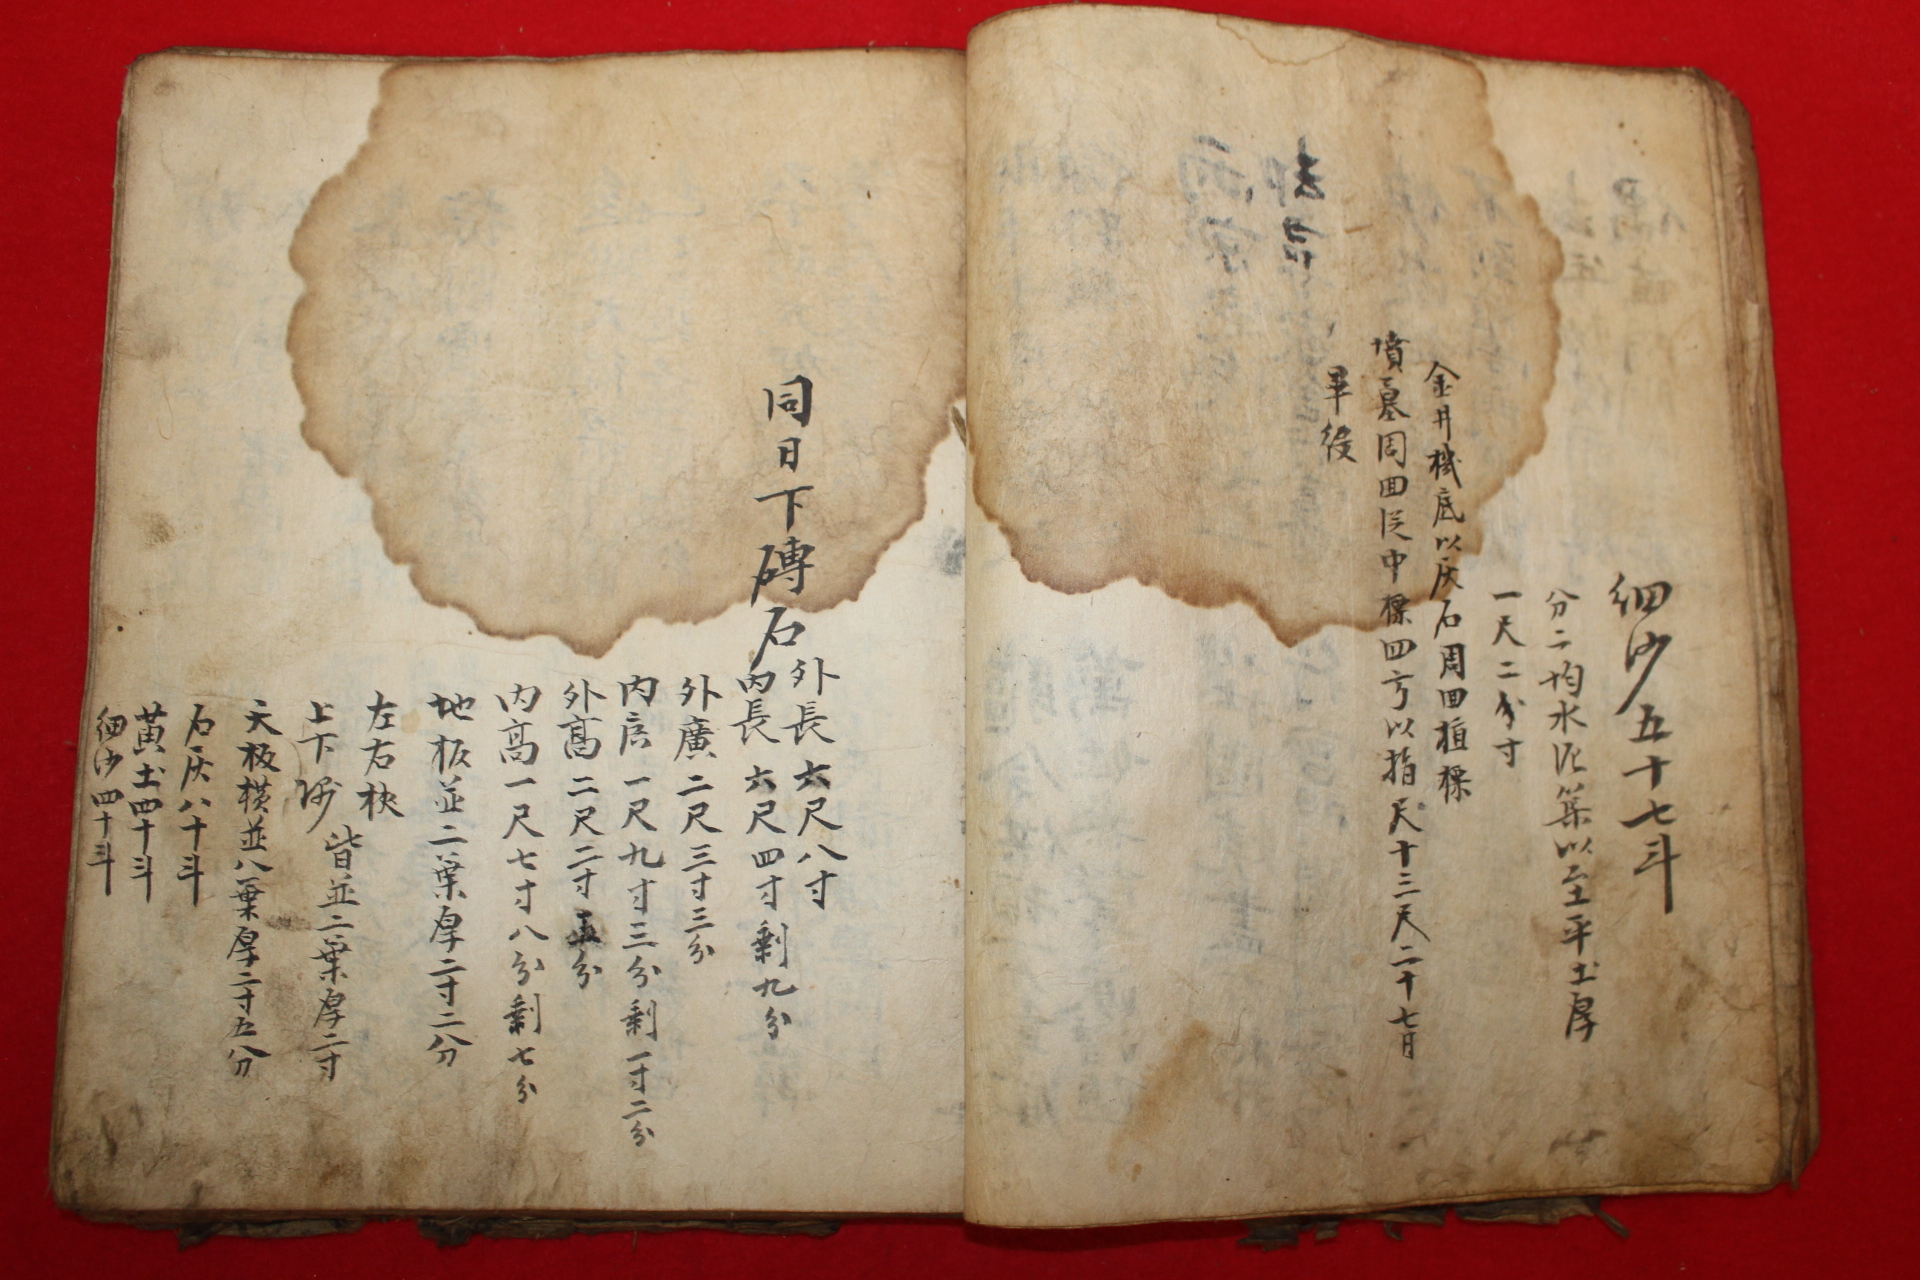 細沙五十七斗
分二均水泥築以至平土厚
一尺二分寸
金井機底以灰石周回植標
墳墓周回從中標四方以指尺十三尺二十七月
畢役
同日下磚石
外長六尺八寸
內長六尺四寸剩九分
外廣二尺三寸三分
內広一尺九寸三分剩一寸二分
外高二尺二寸五分
內高一尺七寸八分剩七分
地板並二葉厚二寸二分
左右板
上下
皆並二葉厚二寸
天板橫並八葉厚二寸五分
石灰八十斗
黃土四十斗
細沙四十斗